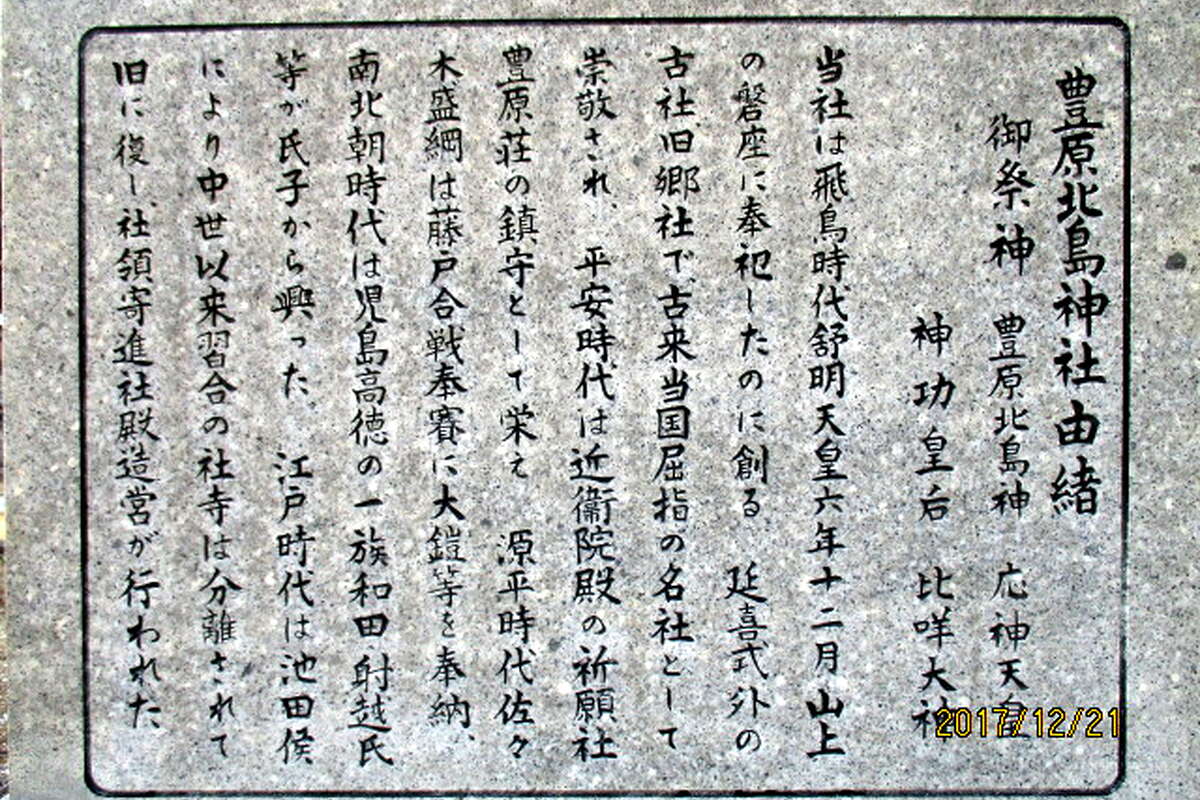 豊原北島神社由緒
御祭神 豊原北島神 応神天皇
神功皇后 比咩大神
当社は飛鳥時代舒明天皇六年十二月山上
の磐座に奉祀したのに創る 延喜式外の
古社、旧郷社で古来当国屈指の名社として
崇敬され、 平安時代は近衞院殿の祈願社
豊原荘の鎮守として栄え 源平時代佐々
木盛綱は藤戸合戦奉賽に大鎧等を奉納、
南北朝時代は児島高徳の一族和田、射越氏
等が氏子から興った 江戸時代は池田侯
により中世以来習合の社寺は分離されて
旧に復し、社領寄進社殿造営が行われた、
2017/12/21